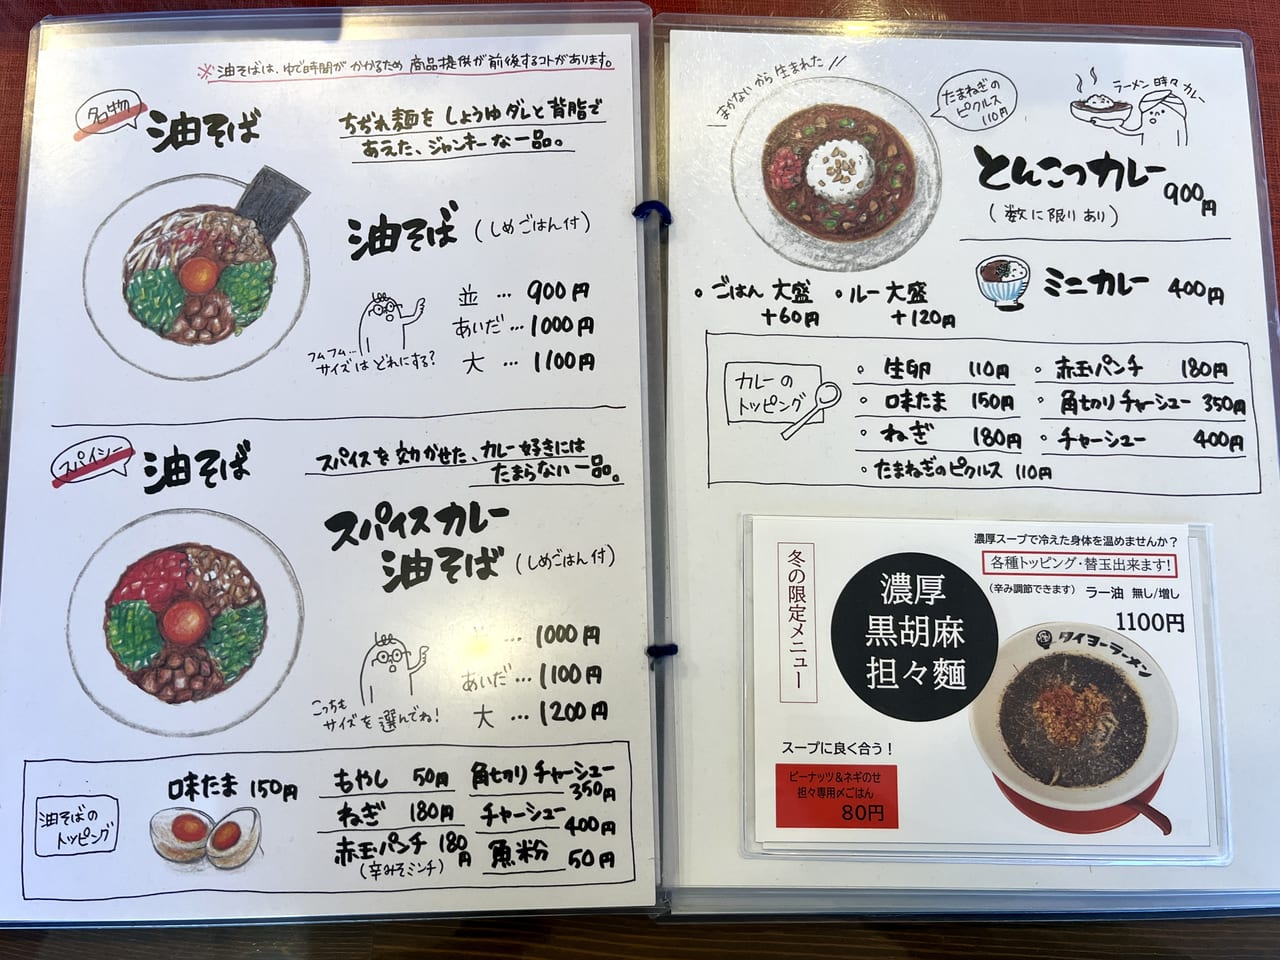 ※油そばは、ゆで時間がかかるため商品提供が前後するコトがあります。
名物
油そば
ちぢれ麺をしょうゆダレと背脂で
あえた、ジャンキーな一品。
油そば（しめごはん付）
並…900円
あいだ…1000円
大…1100円
フムフム…
サイズはどれにする?
スパイシー
油そば
スパイスを効かせた、カレー好きには
たまらない一品。
スパイスカレー
油そば（しめごはん付）
並…1000円
あいだ…1100円
大…1200円
こっちも
サイズを選んでね!
油そばの
トッピング
味たま 150円
もやし 50円
ねぎ 180円
赤玉パンチ 180円
（辛みそミンチ）
角切りチャーシュー 350円
チャーシュー 400円
魚粉 50円
まかないから生まれた
たまねぎの
ピクルス
110円
ラーメン時々カレー
とんこつカレー
900円
（数に限りあり）
ミニカレー 400円
・ごはん大盛
+60円
・ルー大盛
+120円
カレーの
トッピング
・生卵 110円
・味たま 150円
・ねぎ 180円
・たまねぎのピクルス 110円
・赤玉パンチ 180円
・角切りチャーシュー 350円
・チャーシュー 400円
冬の限定メニュー
濃厚
黒胡麻
担々麺
濃厚スープで冷えた身体を温めませんか？
各種トッピング・替玉出来ます!
（辛み調節できます） ラー油 無し/増し
1100円
タイヨーラーメン
スープに良く合う！
ピーナッツ＆ネギのせ
担々専用〆ごはん
80円